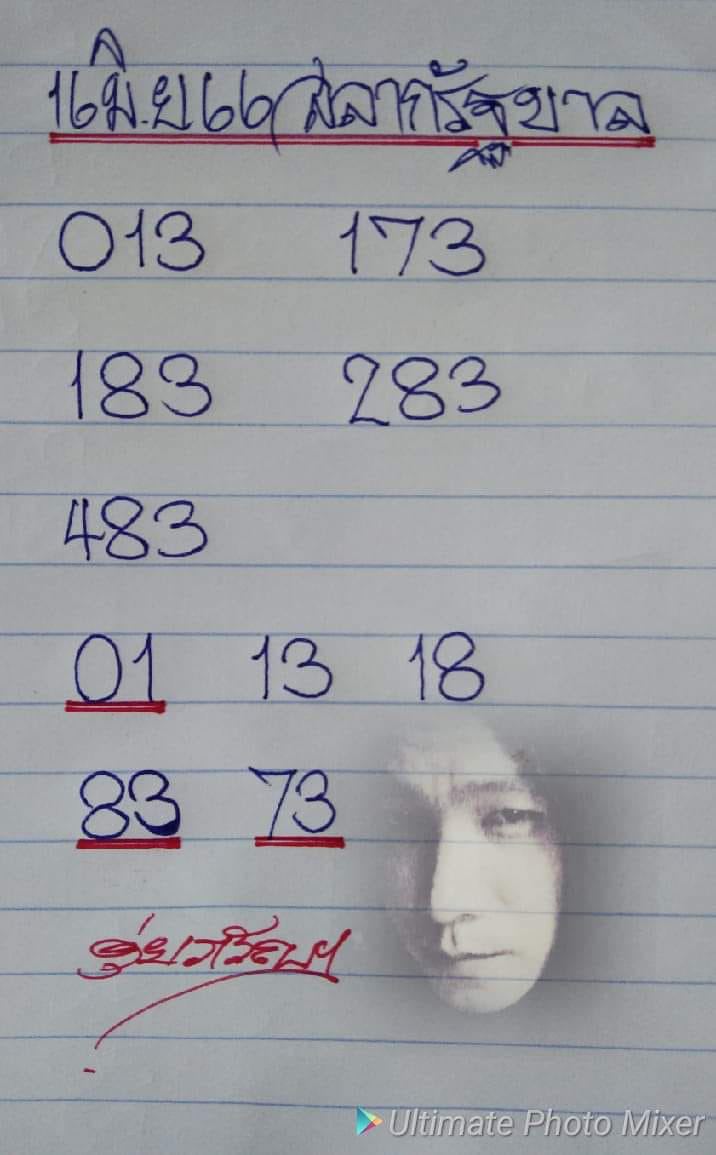 16 มิ.ย 66 สลากรัฐบาล
013 173
183 283
483
01 13 18
83 73
Ultimate Photo Mixer